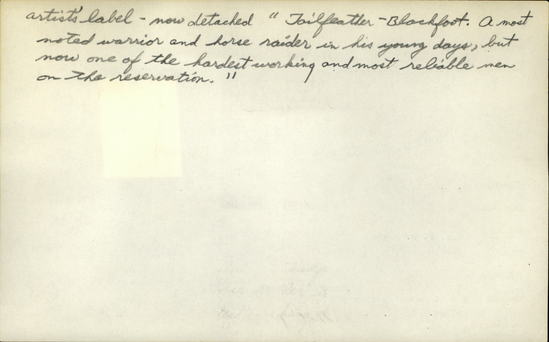 artist's label - now detached " Tailfeather - Blackfoot. A most
noted warrior and horse raider in his young days, but
now one of the hardest working and most reliable men
on the reservation. "